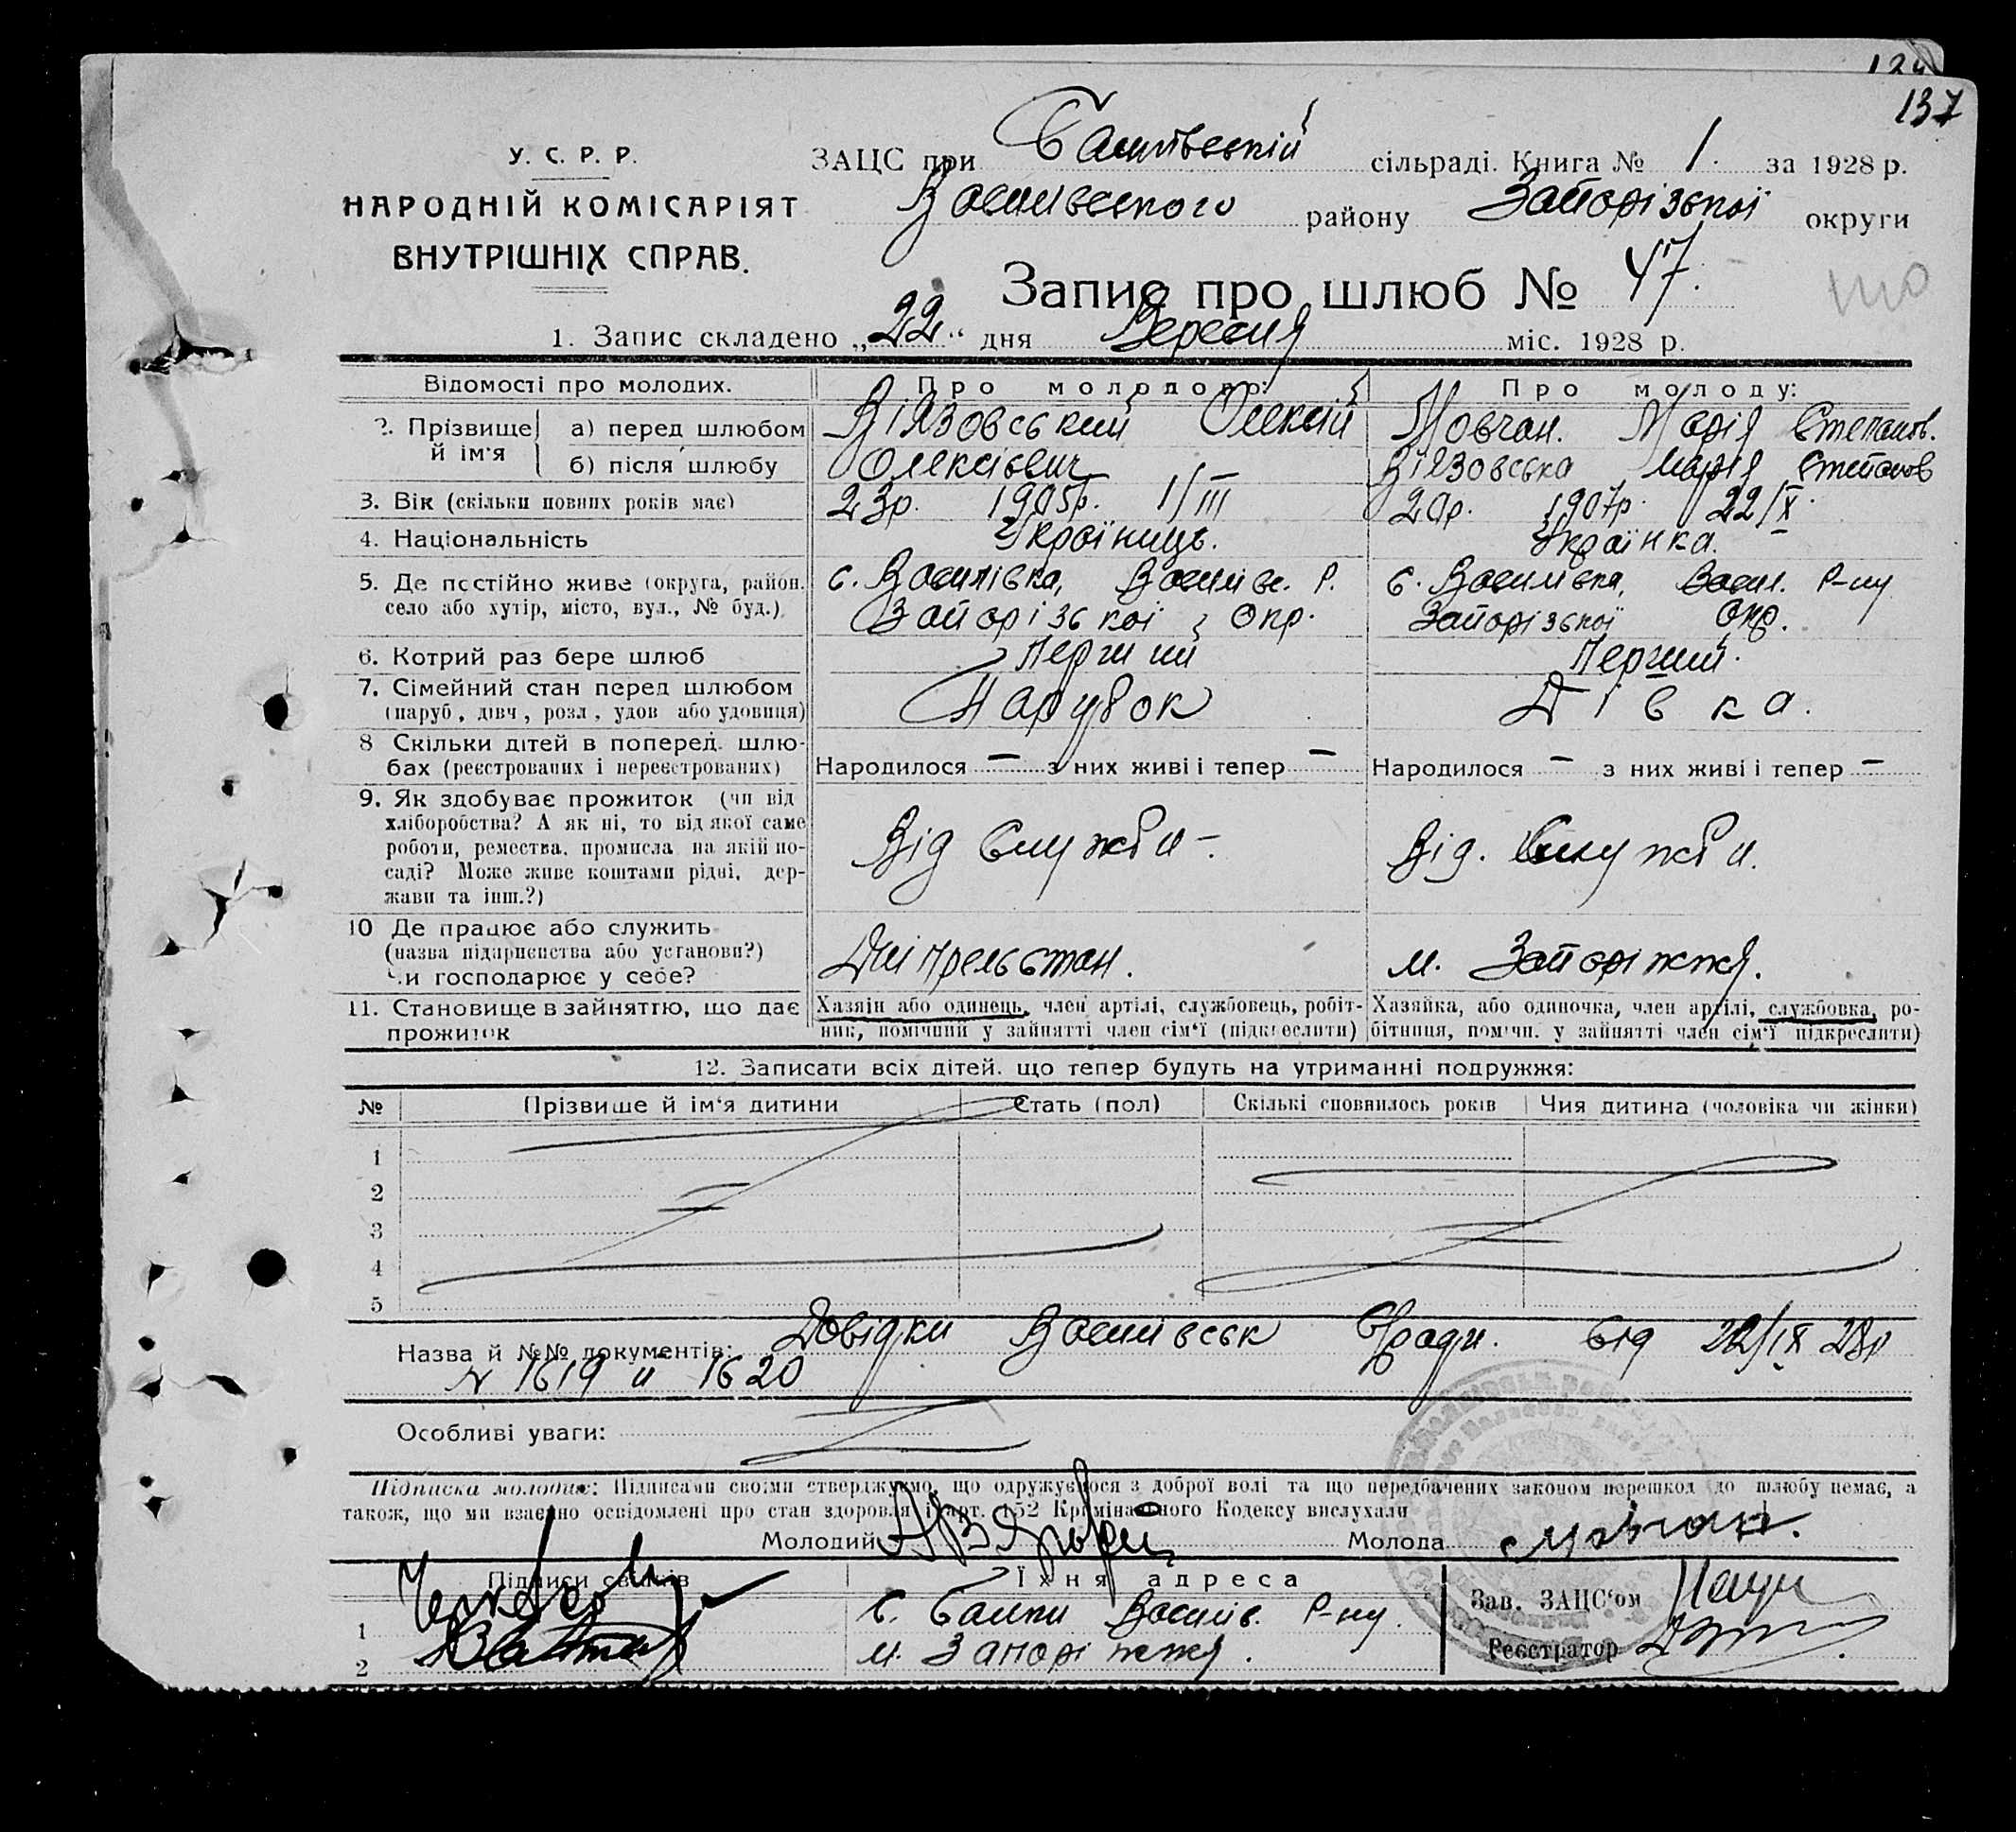 137
У. С. Р. Р.
НАРОДНІЙ КОМІСАРІЯТ
ВНУТРІШНІХ СПРАВ.
ЗАЦС при сільраді. Книга № 1. за 1928 р.
Василівського району Запорізької округи
Запис про шлюб № 47.
1. Запис складено „22“ дня Вересня міс. 1928 р.
Відомості про молодих. Про молодого: Про молоду:
2. Прізвище й ім'я а) перед шлюбом Віязовський Олексій Мовчан. Марія Степанов.
б) після шлюбу Олексієвич Віязовська Марія Степанов
3. Вік (скільки повних років має) 23р. 1905р. 1/III 20р. 1907р. 22/X.
4. Національність Україниць. Українка.
5. Де постійно живе (округа, район. с. Василівка, Василів. Р. с. Василивка, Васил. Р-ну
село або хутір, місто, вул., № буд.) Запорізької Окр. Запорізької Окр.
6. Котрий раз бере шлюб Перший Перший.
7. Сімейний стан перед шлюбом Парубок Дівка.
(паруб, дівч, розл, удов або удовиця)
8 Скільки дітей в поперед. шлю-
бах (реєстрованих і нереєстрованих) Народилося — з них живі і тепер — Народилося — з них живі і тепер —
9. Як здобуває прожиток (чи від
хліборобства? А як ні, то від якої саме
роботи, ремества, промисла на якій по- Від служби -. Від. служби.
саді? Може живе коштами рідні, дер-
жави та інш.?)
10 Де працює або служить
(назва підприєнства або установи?) Дніпрельстан. м. Запоріжжя.
Чи господарює у себе?
11. Становище в зайняттю, що дає Хазяін або одинець, член артілі, службовець, робіт- Хазяйка, або одиночка, член артілі, службовка, ро-
прожиток ник, помічний у зайнятті член сім'ї (підкреслити) бітниця, помічн. у зайнятті член сім'ї підкреслити)
12. Записати всіх дітей. що тепер будуть на утриманні подружжя:
№ Прізвише й ім'я дитини Стать (пол) Скількі сповнилось років Чия дитина (чоловіка чи жінки)
1
2
3
4
5
Назва й №№ документів: Довідки Василівськ С/ради. від 22/IX 28р
N 1619 и 1620
Особливі уваги:
Підписка молодих: Підписами своїми стверджуємо, що одружуємося з доброї волі та що передбачених законом перешкод до шлюбу немає, а
також, що ми взаємно освідомлені про стан здоровля і арт. 152 Кримінального Кодексу вислухали
Молодий Молода Мовчан.
Підписи свідків Їхня адреса
Зав. ЗАЦС'ом
1 с. Балки Василів. Р-ну.
2 м. Запоріжжя. Реєстратор